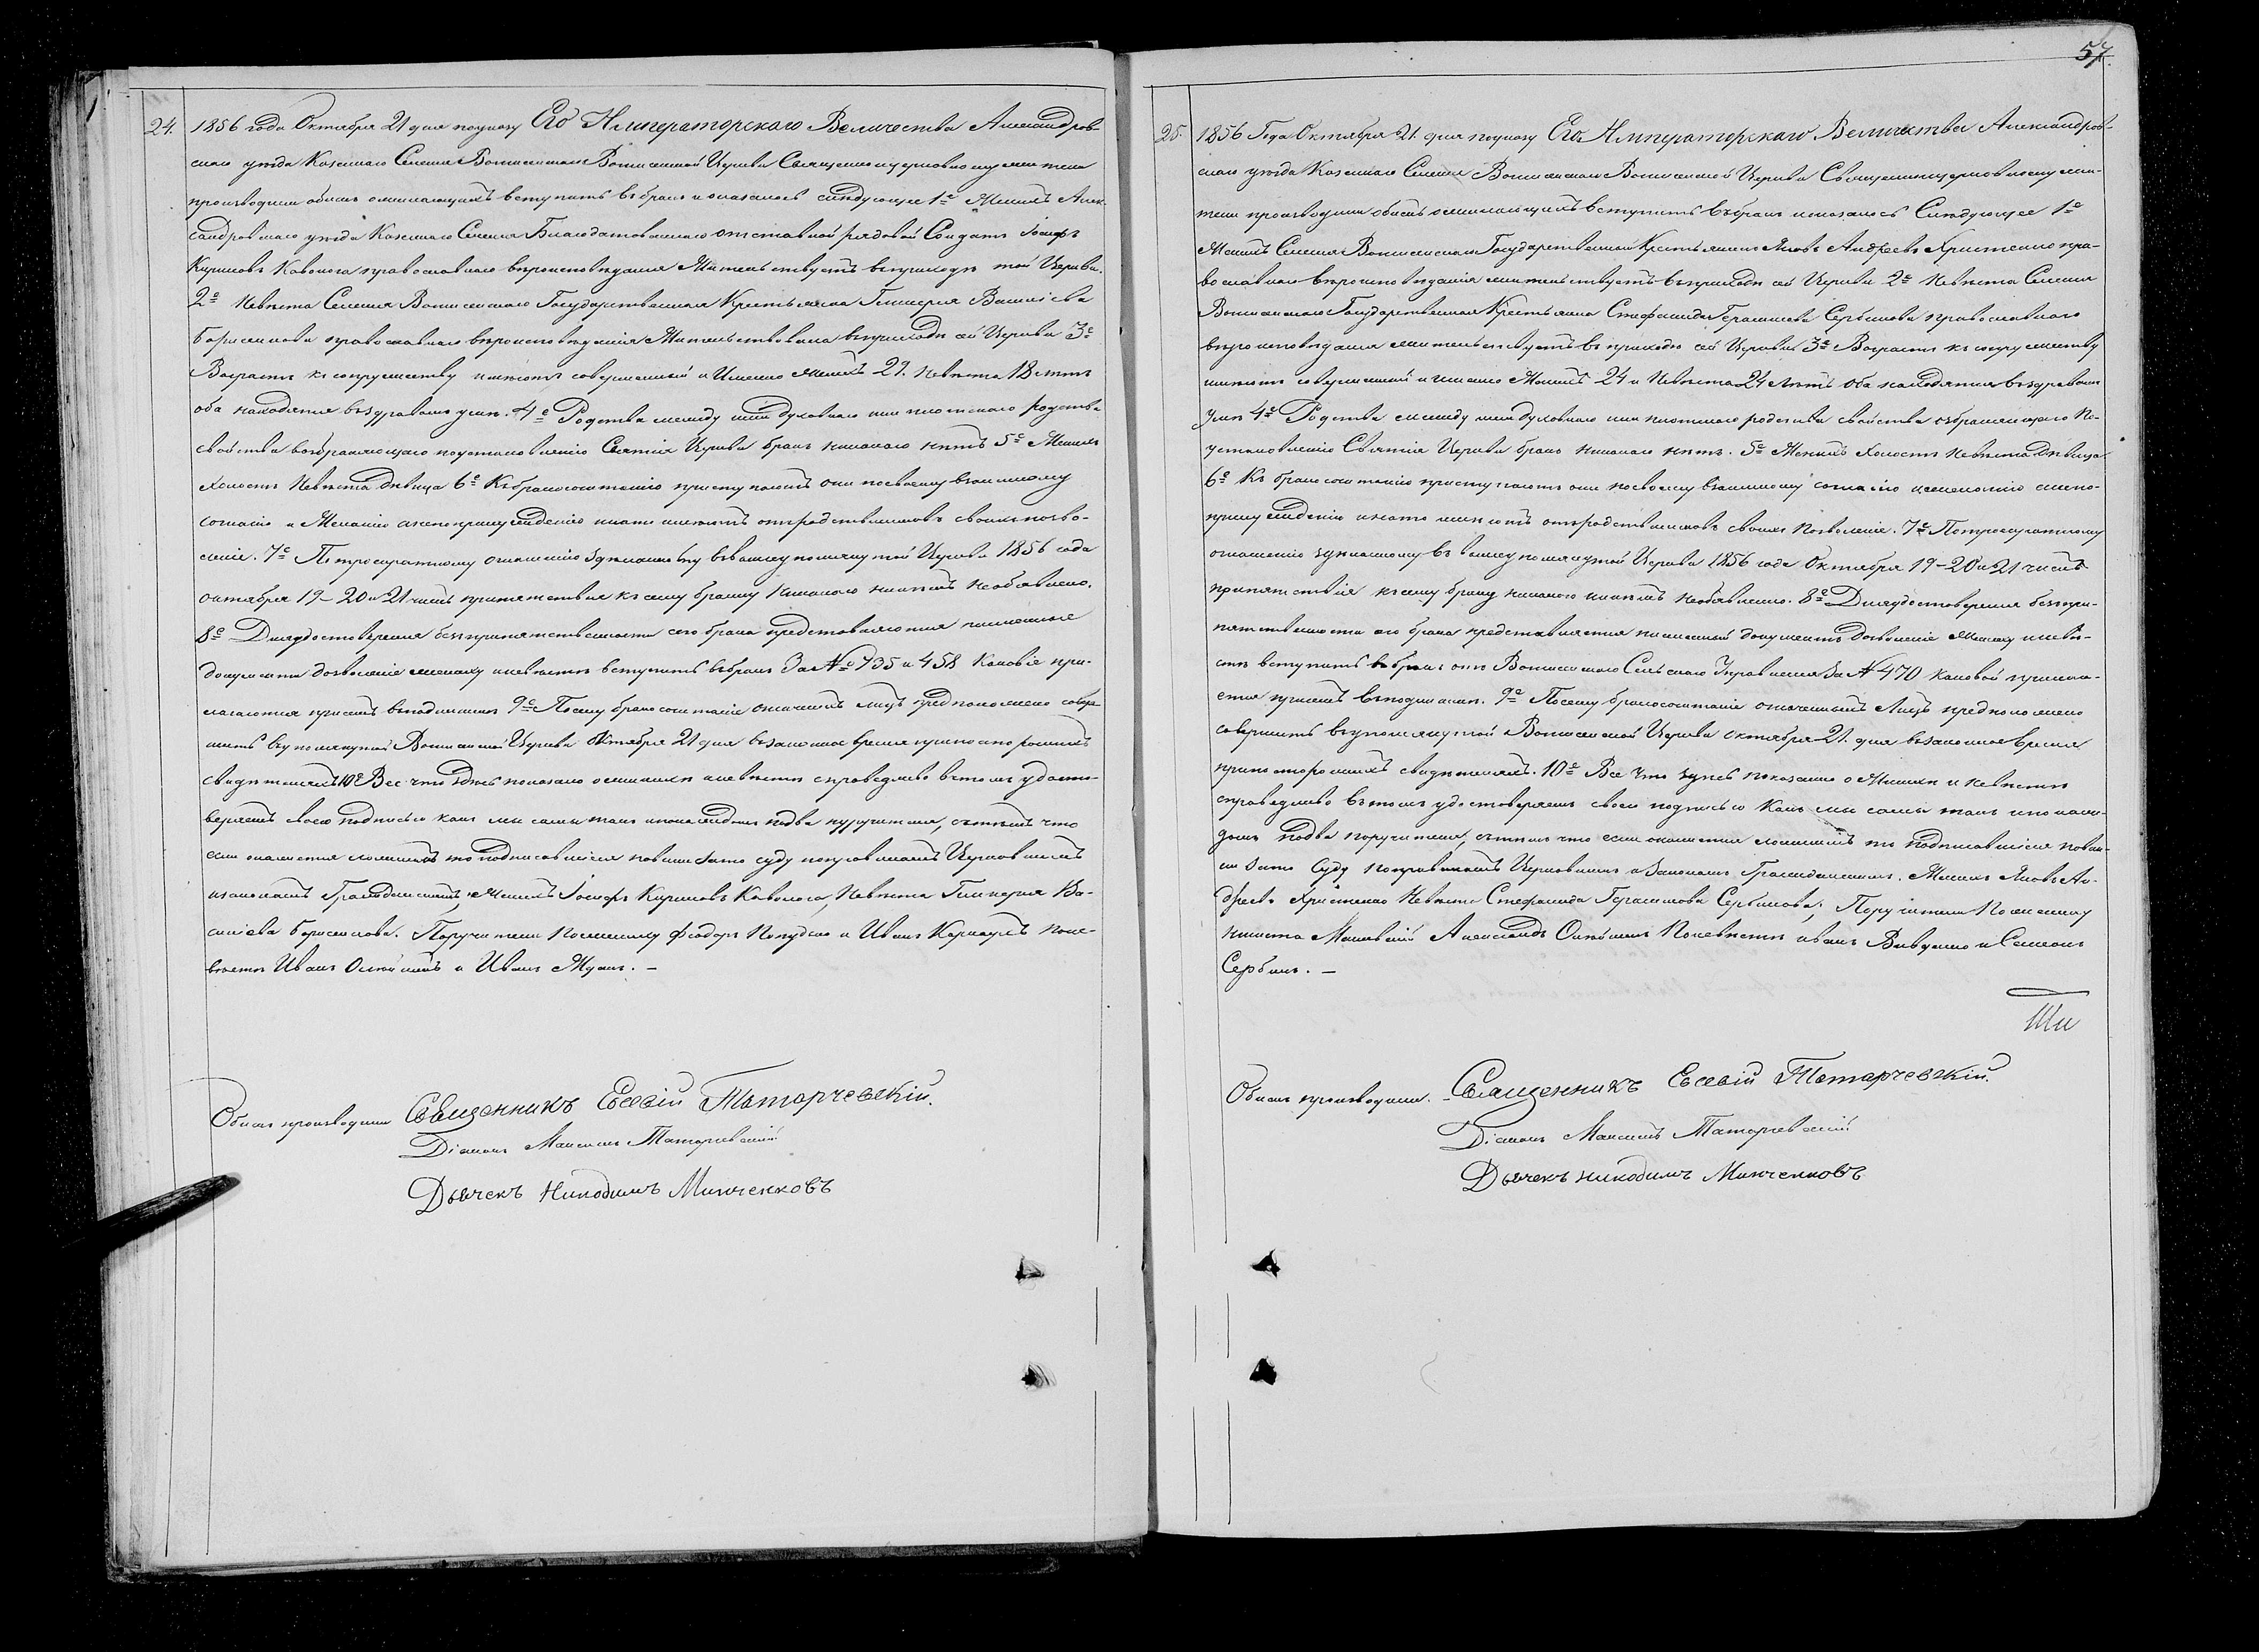 24.
1856 года Октября 21 дня по указу Его Императорскаго Величества Александров-
скаго уезда Казеннаго Селенія Вознесенской Церкви Священноцерковнослужители
производили обыскъ о желающихъ вступить въ бракъ и оказалось следующее 1е Женихъ Алек-
сандровскаго уезда Казеннаго Селенія Благодатовскаго отставной рядовой Солдатъ Іосифъ
Кириловъ православнаго вероисповеданія Жительствуетъ въ приходе той Церкви.
2е Невеста Селенія Государственная Крестьянка Гликерія Василіева
Борисенкова православнаго вероисповеданія Жительствовала въ приходе сей Церкви 3е
Возрастъ къ супружеству имеютъ совершенный и Именно Женихъ 29. Невеста 18 летъ
оба находятся въ здравомъ уме. 4е Родства между ими духовнаго или плотскаго родства
свойства возбраняющаго по установленію Святія Церкви бракъ никакого нетъ 5е Женихъ
холостъ Невеста Девица 6е Къ бракосочетанію приступаютъ они по своему взаимному
согласію и Желанію а не по принужденію и на то имеютъ отъ родственниковъ своихъ позво-
леніе. 7е По троекратному оглашенію зделанному въ вышеупомянутой Церкви 1856 года
октября 19-20 и 21 числъ препятствія къ сему браку никакого никемъ не объявлено.
8е Для удостоверенія безпрепятственности сего брака представляются письменные
документы дозволеніе жениху и невесте вступить въ бракъ За № 735 и 458 каковіе при-
лагаются при семъ въ подлиннике 9е Посему бракосочетаніе означенныхъ лицъ предположено совер-
шить въ упомянутой Церкви Октября 21 дня въ законное время при постороннихъ
свидетеляхъ 10е Все что здесь показано о женихе и невесте справедливо въ томъ удосто-
веряемъ своею подписью какъ мы сами такъ и по каждомъ по два поручителя, съ темъ что
если окажется ложнымъ то подписавшіеся повинны за то суду по правиламъ Церковнымъ
и законамъ Гражданскимъ, Женихъ Іосифъ Кириловъ Невеста Гликерія Ва-
силіева Борисенкова. Поручители По жениху Феодоръ и Иванъ по не-
весте Иванъ и Иванъ
Обыскъ производили Священникъ Евсевій Татарчевскій.
Діаконъ Максимъ Татарчевскій
Дьячекъ Никодимъ Минченковъ
57.
25.
1856 Года Октября 21. дня по указу Его Императорскаго Величества Александров-
скаго уезда Казеннаго Селенія Вознесенской Церкви Священноцерковнослужи-
тели производили обыскъ о желающихъ вступить въ бракъ и оказалось Следующее 1е
Женихъ Селенія Государственный Крестьянинъ Яковъ Андреевъ Христенко пра-
вославнаго вероисповеданія жительствуетъ въ приходе сей Церкви 2е Невеста Селенія
Государственная Крестьянка Стефанида Герасимова Сербинова православнаго
вероисповеданія жительствуетъ въ приходе сей Церкви 3е Возрастъ къ супружеству
имеютъ совершенный и именно Женихъ 24 и Невеста 21 летъ оба находятся въ здравомъ
уме 4е Родства между ими духовнаго или плотскаго родства свойства возбраняющаго по
установленію Святія Церкви бракъ никакого нетъ. 5е Женихъ Холостъ Невеста Девица
6е Къ бракосочетанію приступаютъ они по своему взаимному согласію и желанію а не по
принужденію и на то имеютъ отъ родственниковъ своихъ Позволеніе. 7е По троекратному
оглашенію зделанному въ вышеупомянутой Церкви 1856 года Октября 19-20 и 21 числъ
препятствія къ сему браку никакого никемъ не объявлено. 8е Для удостоверенія безпре-
пятственности сего брака представляется письменный документъ Дозволеніе Жениху и неве-
сте вступить въ бракъ отъ Сельскаго Управленія За № 470 каковой прилага-
ется при семъ въ подлиннике. 9е Посему бракосочетаніе означенныхъ Лицъ предположено
совершить въ упомянутой Церкви октября 21. дня въ законное время
при постороннихъ свидетеляхъ. 10е Все что здесь показано о Женихе и невесте
справедливо въ томъ удостоверяемъ своею подписью Какъ мы сами такъ и по каж-
домъ по два поручителя, съ темъ что если окажется ложнымъ то подписавшіеся повин-
ны за то Суду по правиламъ Церковнымъ и Законамъ Гражданскимъ. Женихъ Яковъ Ан-
дреевъ Христенко Невеста Стефанида Герасимова Сербинова, Поручители По жениху
Александръ По невесте Иванъ и Семенъ
Сербинъ.
Обыскъ производили. Священникъ Евсевій Татарчевскій.
Діаконъ Максимъ Татарчевскій
Дьячекъ Никодимъ Минченковъ